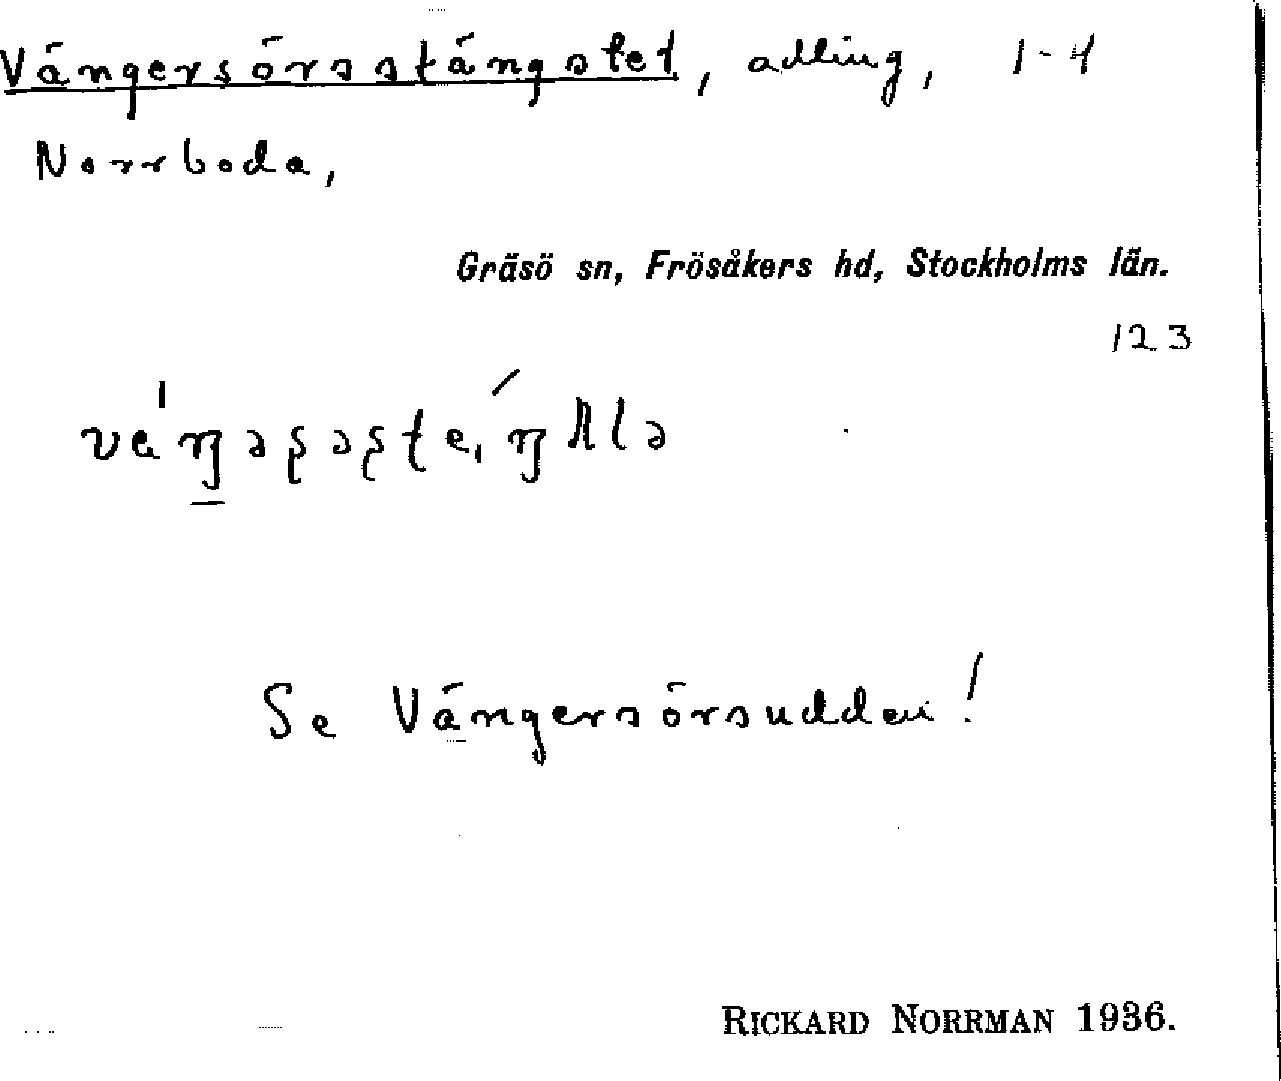 Vängersörsstängslet, adling, 1-4
Norrboda,
Gräsö sn, Frösåkers hd, Stockholms län.
123
Se Vängersörsudden!
RICKARD NORRMAN 1936.